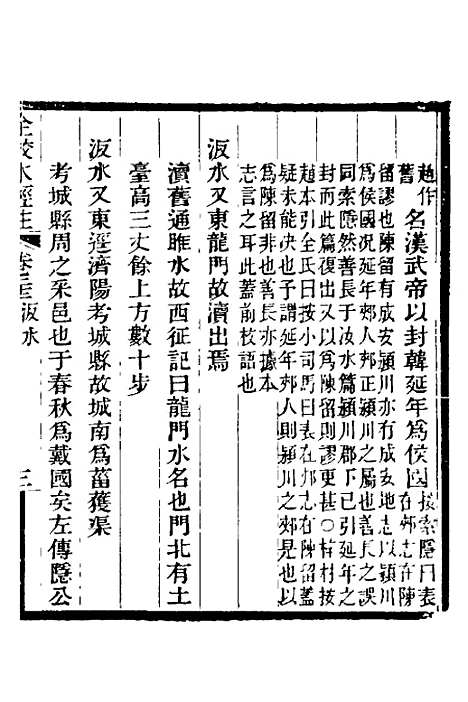 趙作舊名漢武帝以封韓延年爲侯國按索隱曰表在郟志在陳
留謬也陳留有成安潁川亦有成安地志以潁川
爲侯國况延年郟人郟正潁川之屬也善長之誤
同索隱然善長于汝水篇潁川郡下已引延年之
封而此篇復出又爲陳留則謬更甚○梓村按
趙本引全氏曰按小司馬曰表在郟志在陳留蓋
疑未能決也予謂延年郟人則潁川之郟是也以
爲陳留非也善長亦據本
志言之耳此蓋前校語也
汳水又東龍門故瀆出焉
瀆舊通睢水故西征記曰龍門水名也門北有土
臺高三丈餘上方數十步
汳水又東逕濟陽考城縣故城南爲菑獲渠
考城縣周之采邑也于春秋爲戴國矣左傳隱公
全校水經注 卷二十三汳水 三